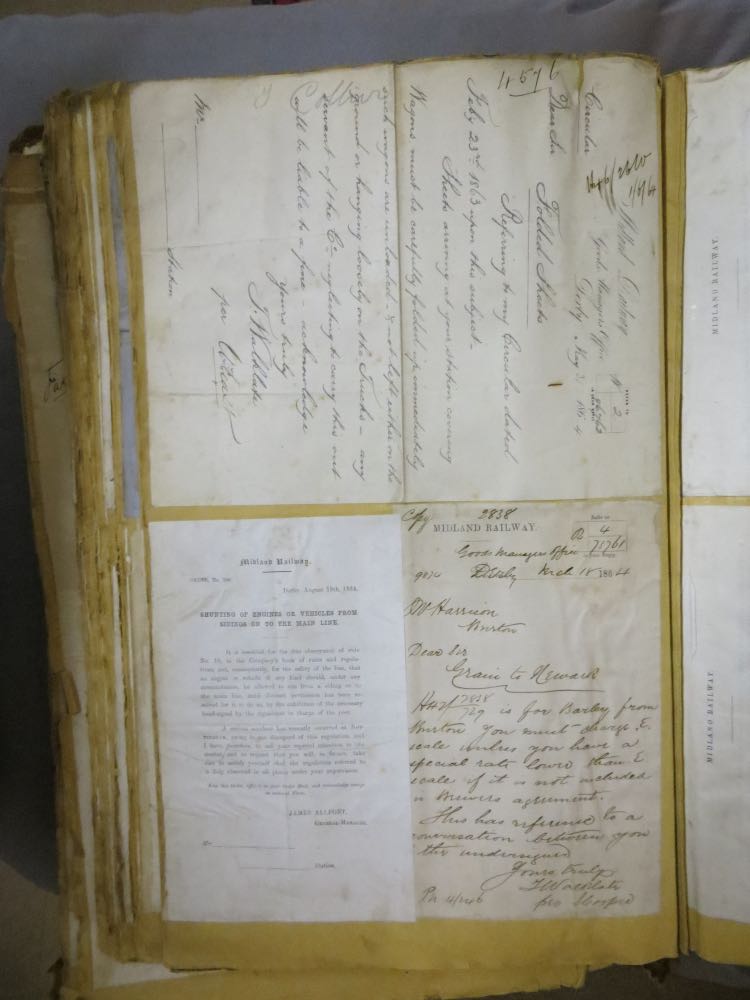 Circular
Midland Railway
Goods Managers Office
Derby May 3 1864
REFER TO
2
11576
Dear Sir
Folded Sheets
Referring to my Circular dated
Feby 23rd 1863 upon this subject -
Sheets arriving at your station covering
Wagons must be carefully folded up immediately
such wagons are unloaded & not left either on the
ground or hanging loosely on the Trucks - any
servant of the Co. neglecting to carry this out
will be liable to a fine - acknowledge
Yours truly
J. Walklate
per
Mr.
Station
Midland Railway.
Derby, August 19th, 1864.
SHUNTING OF ENGINES OR VEHICLES FROM
SIDINGS ON TO THE MAIN LINE.
It is essential for the due observance of rule
No. 10, in the Company's book of rules and regula-
tions, and, consequently, for the safety of the line, that
no engine or vehicle of any kind should, under any
circumstances, be allowed to run from a siding on to
the main line, until distinct permission has been re-
ceived for it to do so, by the exhibition of the necessary
hand-signal by the signalman in charge of the post.
A serious accident has recently occurred at
owing to the disregard of this regulation, and
I have, therefore, to call your especial attention to the
matter, and to request that you will, in future, take
care to satisfy yourself that the regulation referred to
is duly observed at all places under your supervision.
JAMES ALLPORT,
General Manager.
Station.
Copy 2838
MIDLAND RAILWAY
Refer to
4
71761
Goods Managers Office
9874 Derby Mch 18 1864
Mr Harrison
Burton
Dear Sir
Grain to Newark
2838
729 is for Barley from
Burton you must charge E.
scale unless you have a
special rate lower than E
scale if it is not included
in Brewers agreement.
This has reference to a
conversation between you
& the undersigned
Yours truly
J Walklate
pro
MIDLAND RAILWAY
MIDLAND RAILWAY